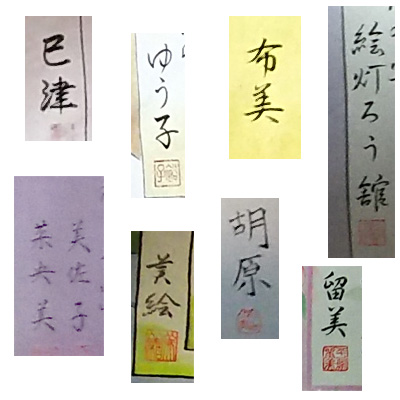 巳津
ゆう子
布美
絵灯ろう館
美佐子
菜央美
黄絵
胡原
留美